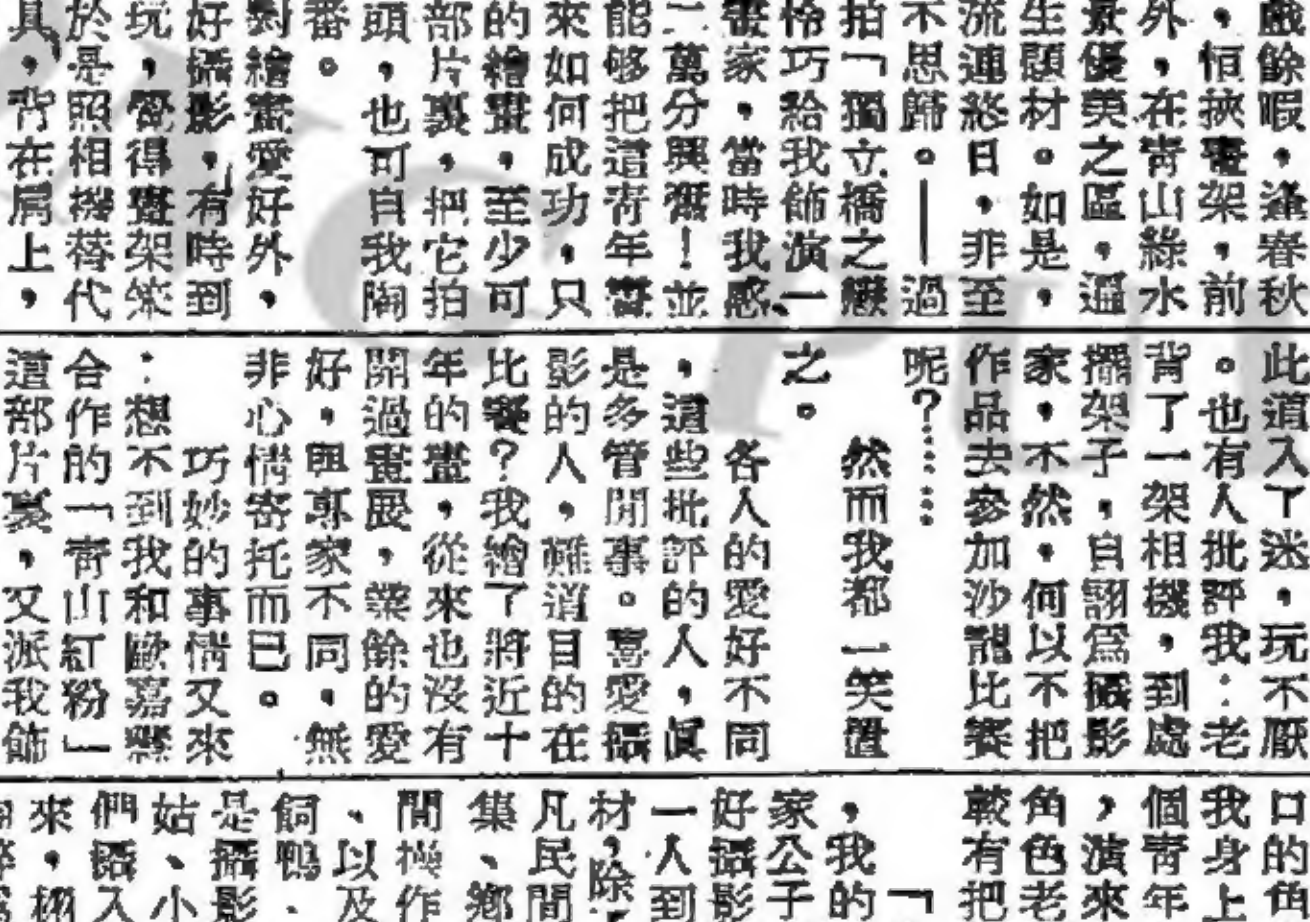 戲餘暇，逢春秋
，恒挾畫架，前
外，在青山綠水
景優美之區，逼
生題材。如是，
流連慾日，非至
不思歸。——過
拍「獨立橋之戀
伶巧給我飾演一
畫家，當時我感
二萬分興奮！並
能够把這青年畫
來如何成功，只
的繪畫，至少可
部片裏，把它拍
頭，也可自我陶
番。
對繪畫愛好外，
好攝影，有時到
玩，覺得畫架笨
於是照相機替代
具，背在肩上，
此道入了迷，玩不厭
。也有人批評我：老
背了一架相機，到處
擺架子，自詡爲攝影
家，不然，何以不把
作品去參加沙龍比賽
呢？……
然而我都一笑置
之。
各人的愛好不同
，這些批評的人，眞
是多管閒事。喜愛攝
影的人，難道目的在
比賽？我繪了將近十
年的畫，從來也沒有
開過畫展，業餘的愛
好，跟專家不同，無
非心情寄托而已。
巧妙的事情又來
：想不到我和歐嘉慧
合作的「青山紅粉」
這部片裏，又派我飾
口的角
我身上
個青年
，演來
角色老
較有把
「
，我的
家公子
好攝影
一人到
材，除
凡民間
集、鄉
間操作
、以及
飼鴨、
是攝影
姑、小
們攝入
來，栩